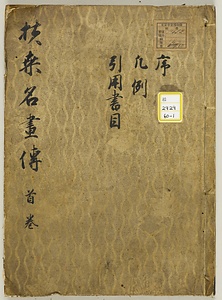 扶桑名畫傳 首巻
序
凡例
引用書目
2929
60-1